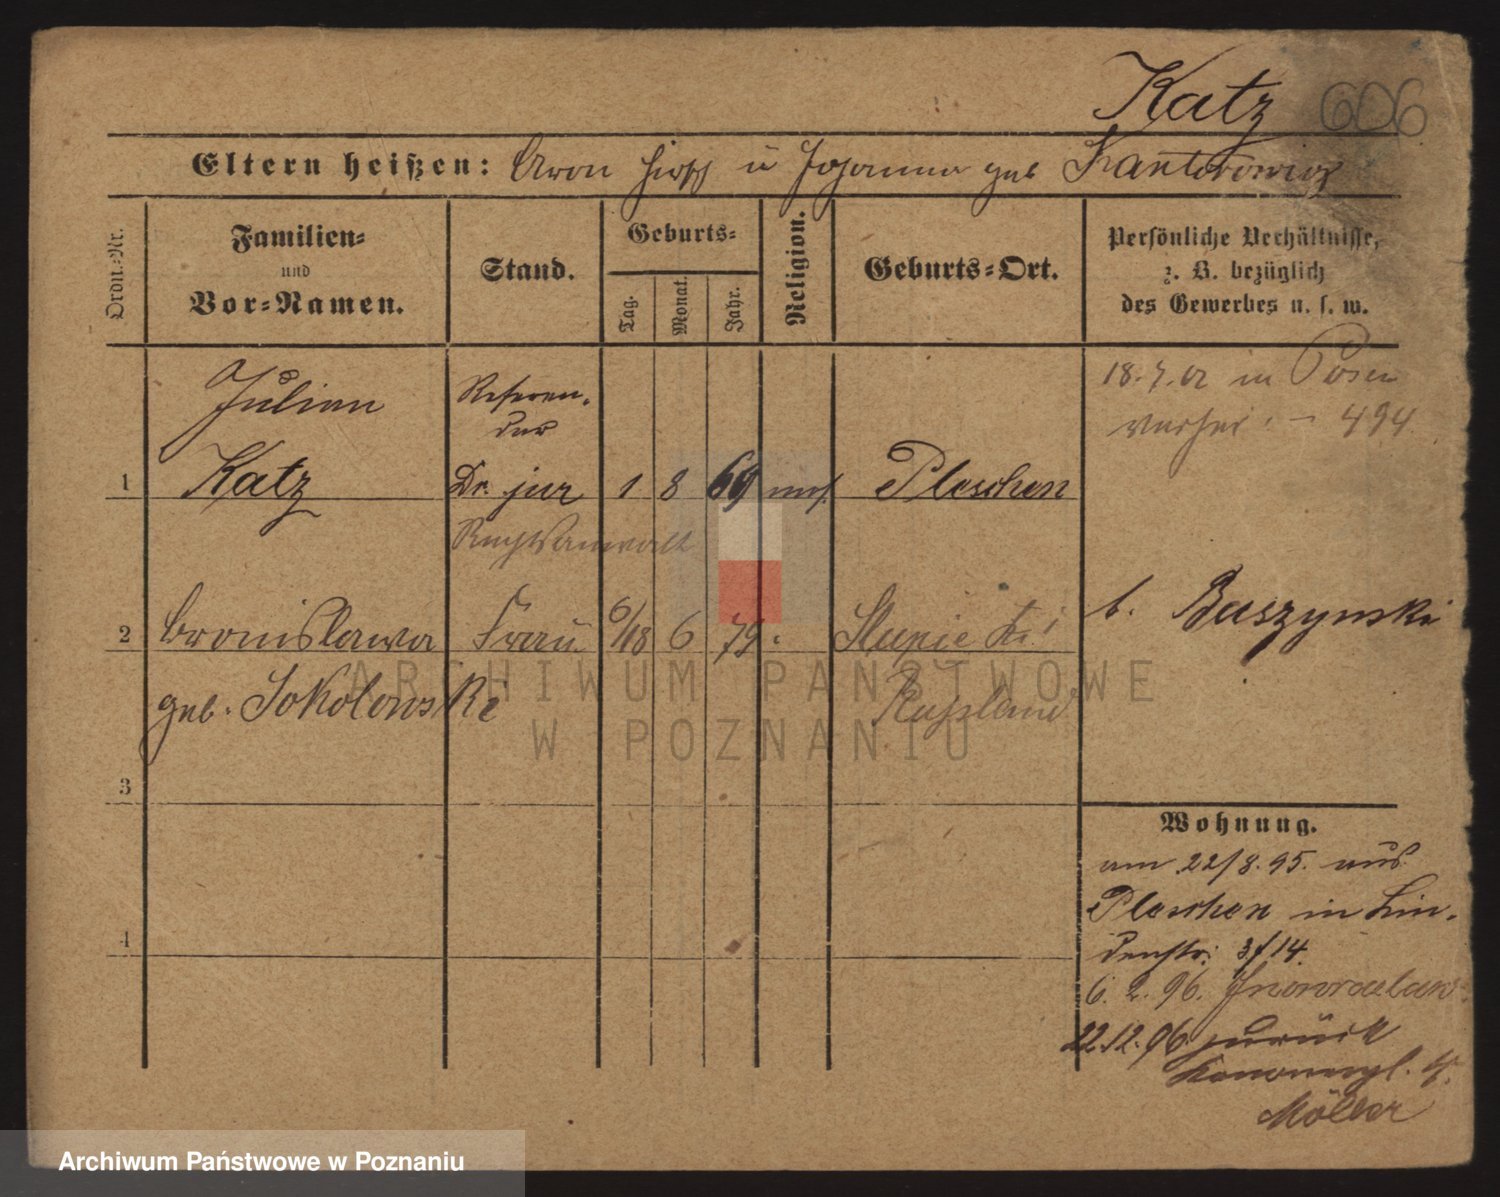 Katz 606
Eltern heißen: Aron Hirsch u Johanna geb Kantorowicz
Ordn.-Nr.
Familien-
und
Vor-Namen.
Stand.
Geburts-
Tag.
Monat.
Jahr.
Religion.
Geburts-Ort.
Persönliche Verhältnisse,
z. B. bezüglich
des Gewerbes u. s. w.
Julian
Referen-
dar
18.7.02 in Posen
verhei. - 494
1 Katz Dr. jur 1 8 69 mos. Pleschen
Rechtsanwalt
b. Baszynski
2 Bronislawa Frau 6/18 6 79 Slupie
geb. Sokolowski Russland
3
4
Wohnung.
am 22/8.95. aus
Pleschen in Lin-
denstr. 3/14.
6.2.96. Inowrazlaw
22.12.96. zurück
Kanonenpl.
Möller
ARCHIWUM PAŃSTWOWE
W POZNANIU
Archiwum Państwowe w Poznaniu